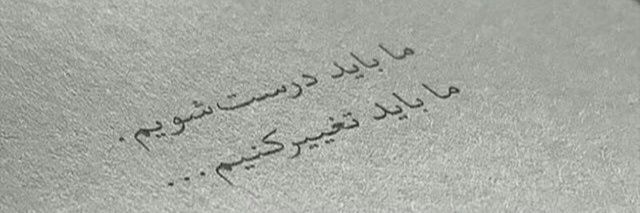 ما باید درست شویم.
ما باید تغییر کنیم...